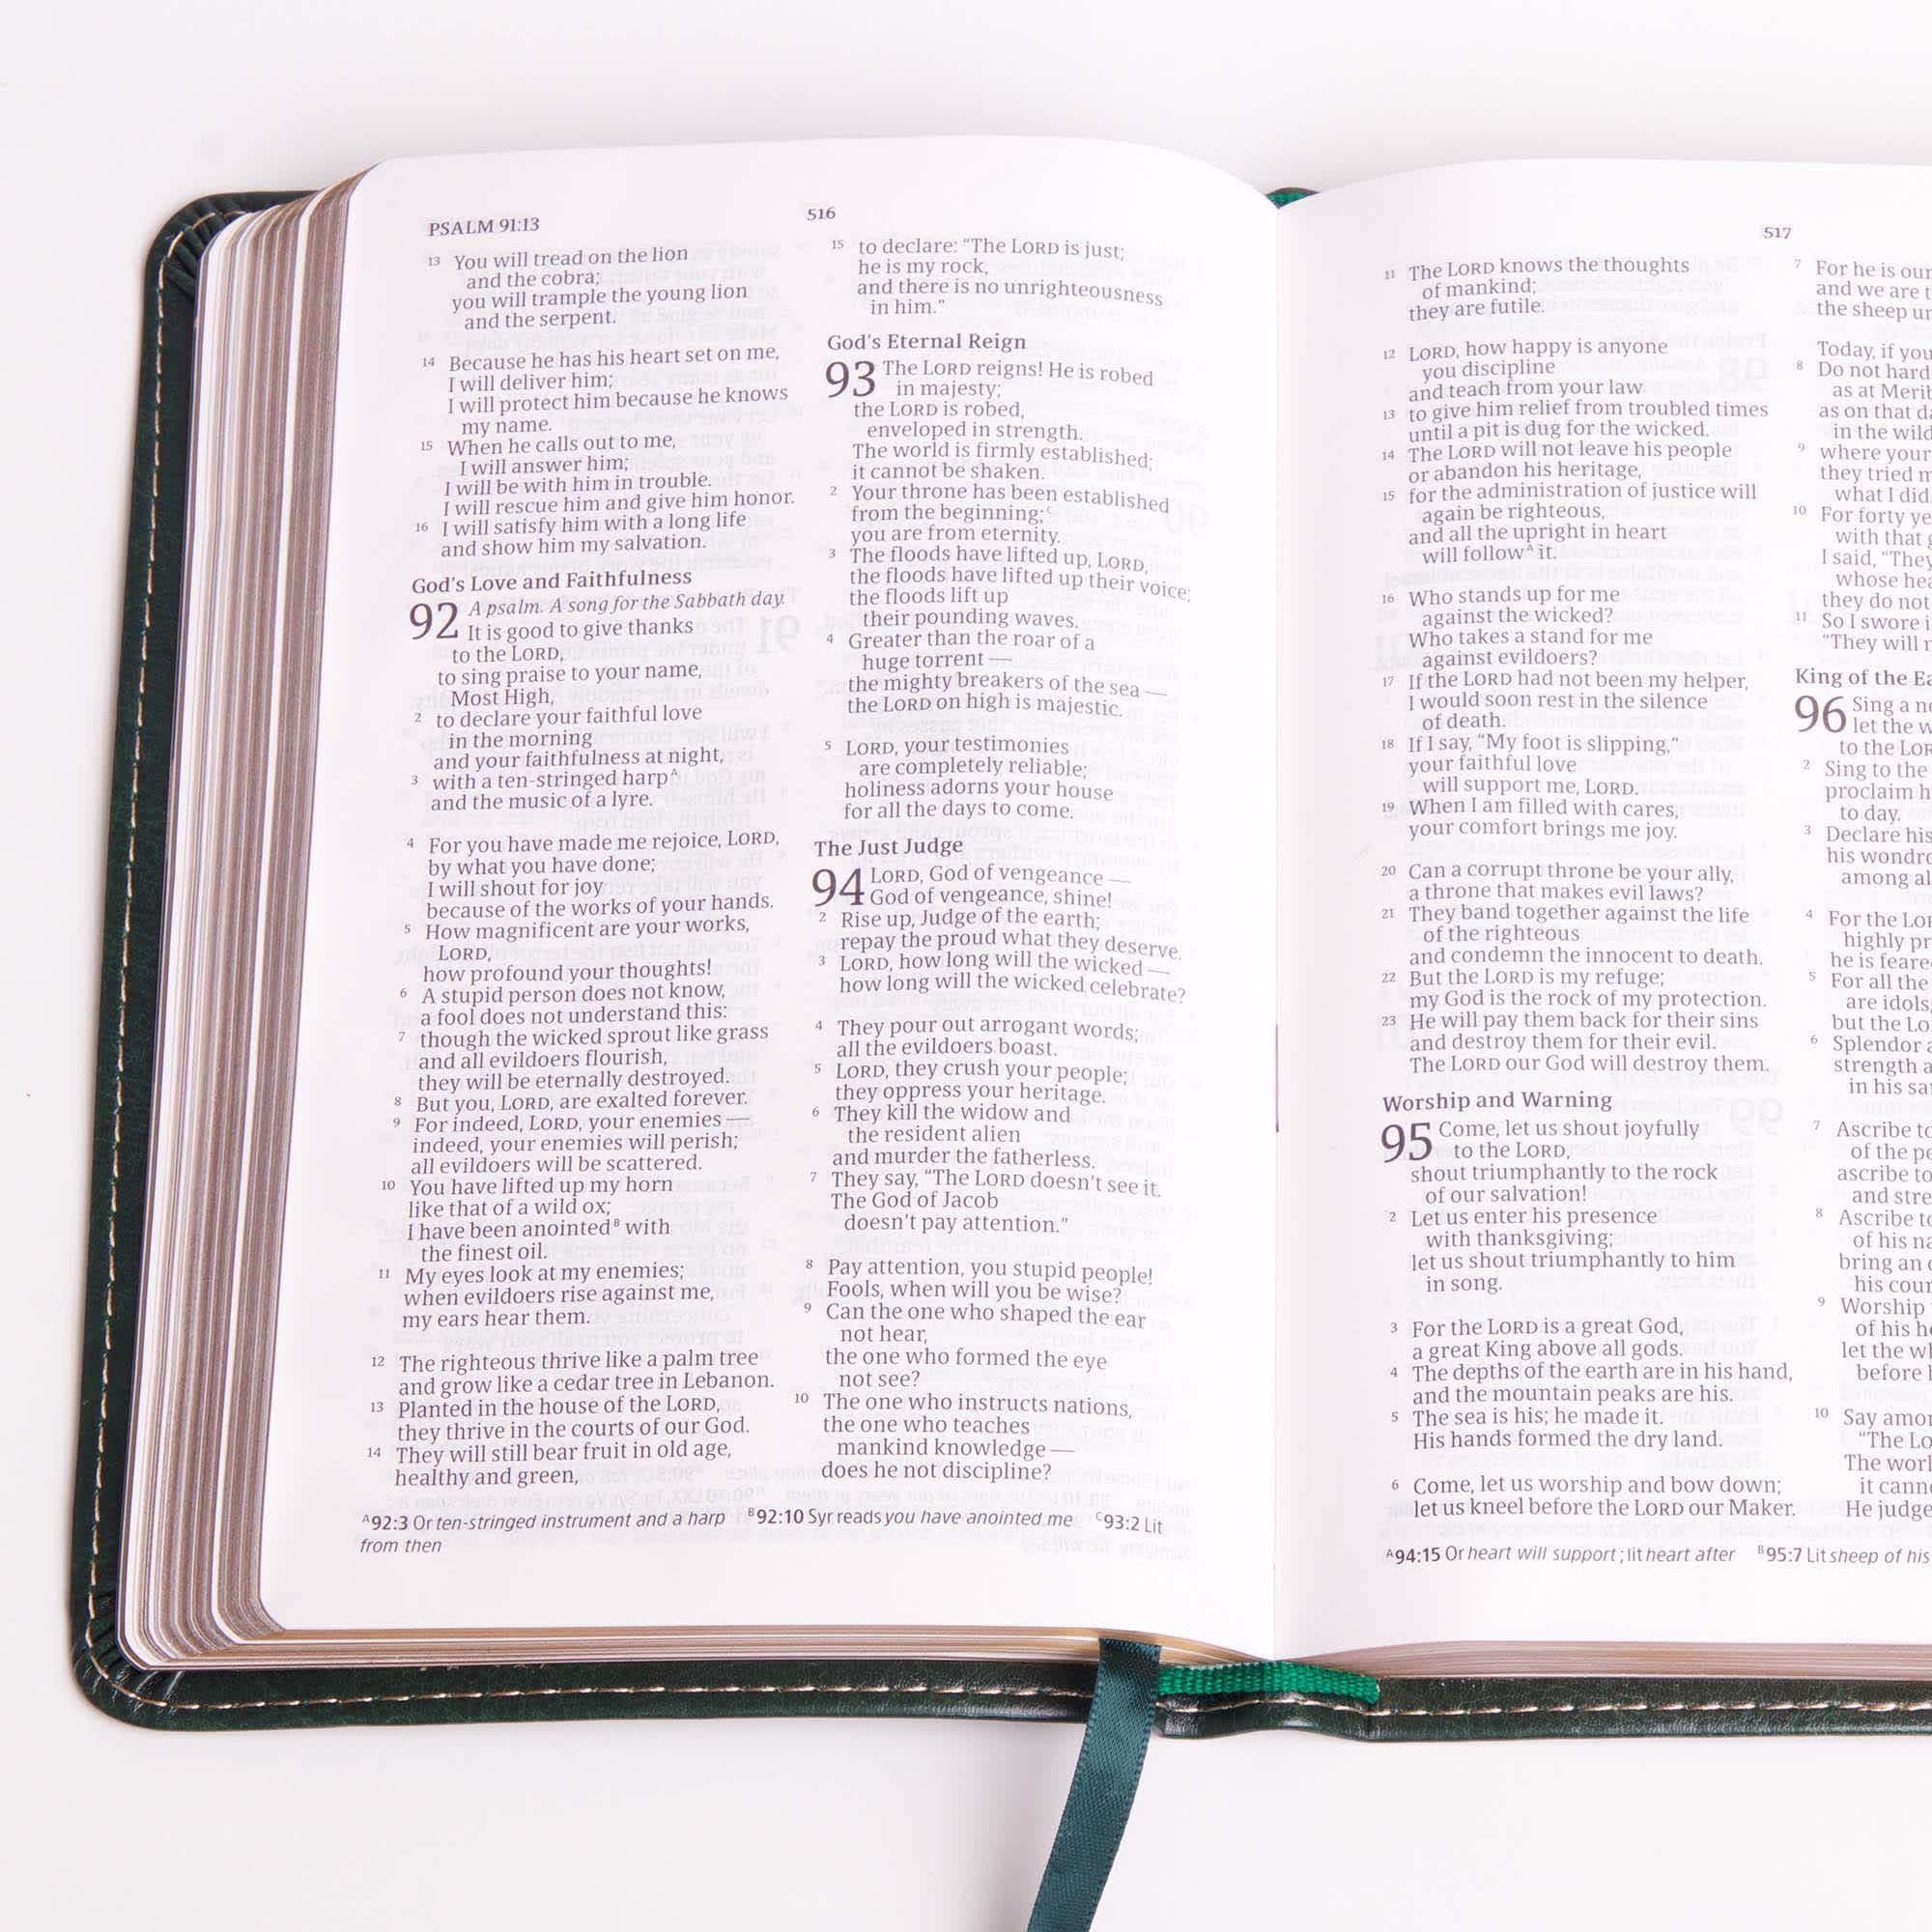 PSALM 91:13
516
13 You will tread on the lion
and the cobra;
you will trample the young lion
and the serpent.
14 Because he has his heart set on me,
I will deliver him;
I will protect him because he knows
my name.
15 When he calls out to me,
I will answer him;
I will be with him in trouble.
I will rescue him and give him honor.
16 I will satisfy him with a long life
and show him my salvation.
God's Love and Faithfulness
92 A psalm. A song for the Sabbath day.
It is good to give thanks
to the LORD,
to sing praise to your name,
Most High,
2 to declare your faithful love
in the morning
and your faithfulness at night,
3 with a ten-stringed harp A
and the music of a lyre.
4 For you have made me rejoice, LORD,
by what you have done;
I will shout for joy
because of the works of your hands.
5 How magnificent are your works,
LORD,
how profound your thoughts!
6 A stupid person does not know,
a fool does not understand this:
7 though the wicked sprout like grass
and all evildoers flourish,
they will be eternally destroyed.
8 But you, LORD, are exalted forever.
9 For indeed, LORD, your enemies —
indeed, your enemies will perish;
all evildoers will be scattered.
10 You have lifted up my horn
like that of a wild ox;
I have been anointed B with
the finest oil.
11 My eyes look at my enemies;
when evildoers rise against me,
my ears hear them.
12 The righteous thrive like a palm tree
and grow like a cedar tree in Lebanon.
13 Planted in the house of the LORD,
they thrive in the courts of our God.
14 They will still bear fruit in old age,
healthy and green,
15 to declare: "The LORD is just;
he is my rock,
and there is no unrighteousness
in him."
God's Eternal Reign
93 The LORD reigns! He is robed
in majesty;
the LORD is robed,
enveloped in strength.
The world is firmly established;
it cannot be shaken.
2 Your throne has been established
from the beginning; C
you are from eternity.
3 The floods have lifted up, LORD,
the floods have lifted up their voice;
the floods lift up
their pounding waves.
4 Greater than the roar of a
huge torrent —
the mighty breakers of the sea —
the LORD on high is majestic.
5 LORD, your testimonies
are completely reliable;
holiness adorns your house
for all the days to come.
The Just Judge
94 LORD, God of vengeance —
God of vengeance, shine!
2 Rise up, Judge of the earth;
repay the proud what they deserve.
3 LORD, how long will the wicked —
how long will the wicked celebrate?
4 They pour out arrogant words;
all the evildoers boast.
5 LORD, they crush your people;
they oppress your heritage.
6 They kill the widow and
the resident alien
and murder the fatherless.
7 They say, "The LORD doesn't see it.
The God of Jacob
doesn't pay attention."
8 Pay attention, you stupid people!
Fools, when will you be wise?
9 Can the one who shaped the ear
not hear,
the one who formed the eye
not see?
10 The one who instructs nations,
the one who teaches
mankind knowledge —
does he not discipline?
A 92:3 Or ten-stringed instrument and a harp B 92:10 Syr reads you have anointed me C 93:2 Lit
from then
517
11 The LORD knows the thoughts
of mankind;
they are futile.
12 LORD, how happy is anyone
you discipline
and teach from your law
13 to give him relief from troubled times
until a pit is dug for the wicked.
14 The LORD will not leave his people
or abandon his heritage,
15 for the administration of justice will
again be righteous,
and all the upright in heart
will follow A it.
16 Who stands up for me
against the wicked?
Who takes a stand for me
against evildoers?
17 If the LORD had not been my helper,
I would soon rest in the silence
of death.
18 If I say, "My foot is slipping,"
your faithful love
will support me, LORD.
19 When I am filled with cares,
your comfort brings me joy.
20 Can a corrupt throne be your ally,
a throne that makes evil laws?
21 They band together against the life
of the righteous
and condemn the innocent to death.
22 But the LORD is my refuge;
my God is the rock of my protection.
23 He will pay them back for their sins
and destroy them for their evil.
The LORD our God will destroy them.
Worship and Warning
95 Come, let us shout joyfully
to the LORD,
shout triumphantly to the rock
of our salvation!
2 Let us enter his presence
with thanksgiving;
let us shout triumphantly to him
in song.
3 For the LORD is a great God,
a great King above all gods.
4 The depths of the earth are in his hand,
and the mountain peaks are his.
5 The sea is his; he made it.
His hands formed the dry land.
6 Come, let us worship and bow down;
let us kneel before the LORD our Maker.
7 For he is our
and we are
the sheep
Today, if you
8 Do not
as at
as on that
in the
9 where your
they tried
what I did.
10 For forty
with that
I said, "They
whose
they do not
11 So I swore
"They will
King of the
96 Sing a
let the
to the
2 Sing to the
proclaim
to day.
3 Declare his
his
among
4 For the
highly
he is
5 For all the
are idols,
but the
6 Splendor
strength
in his
7 Ascribe to
of the
ascribe to
and
8 Ascribe to
of his
bring an
his
9 Worship
of his
let the
before
10 Say
"The
The
it
He
A 94:15 Or heart will support; lit heart after B 95:7 Lit sheep of his